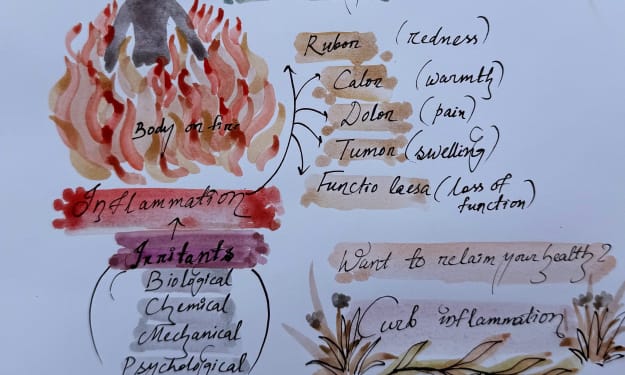 Body on fire
Inflammation
Irritants
Biological
Chemical
Mechanical
Psychological
Rubor (redness)
Calor (warmth)
Dolor (pain)
Tumor (swelling)
Functio laesa (loss of
function)
Want to reclaim your health?
Curb inflammation